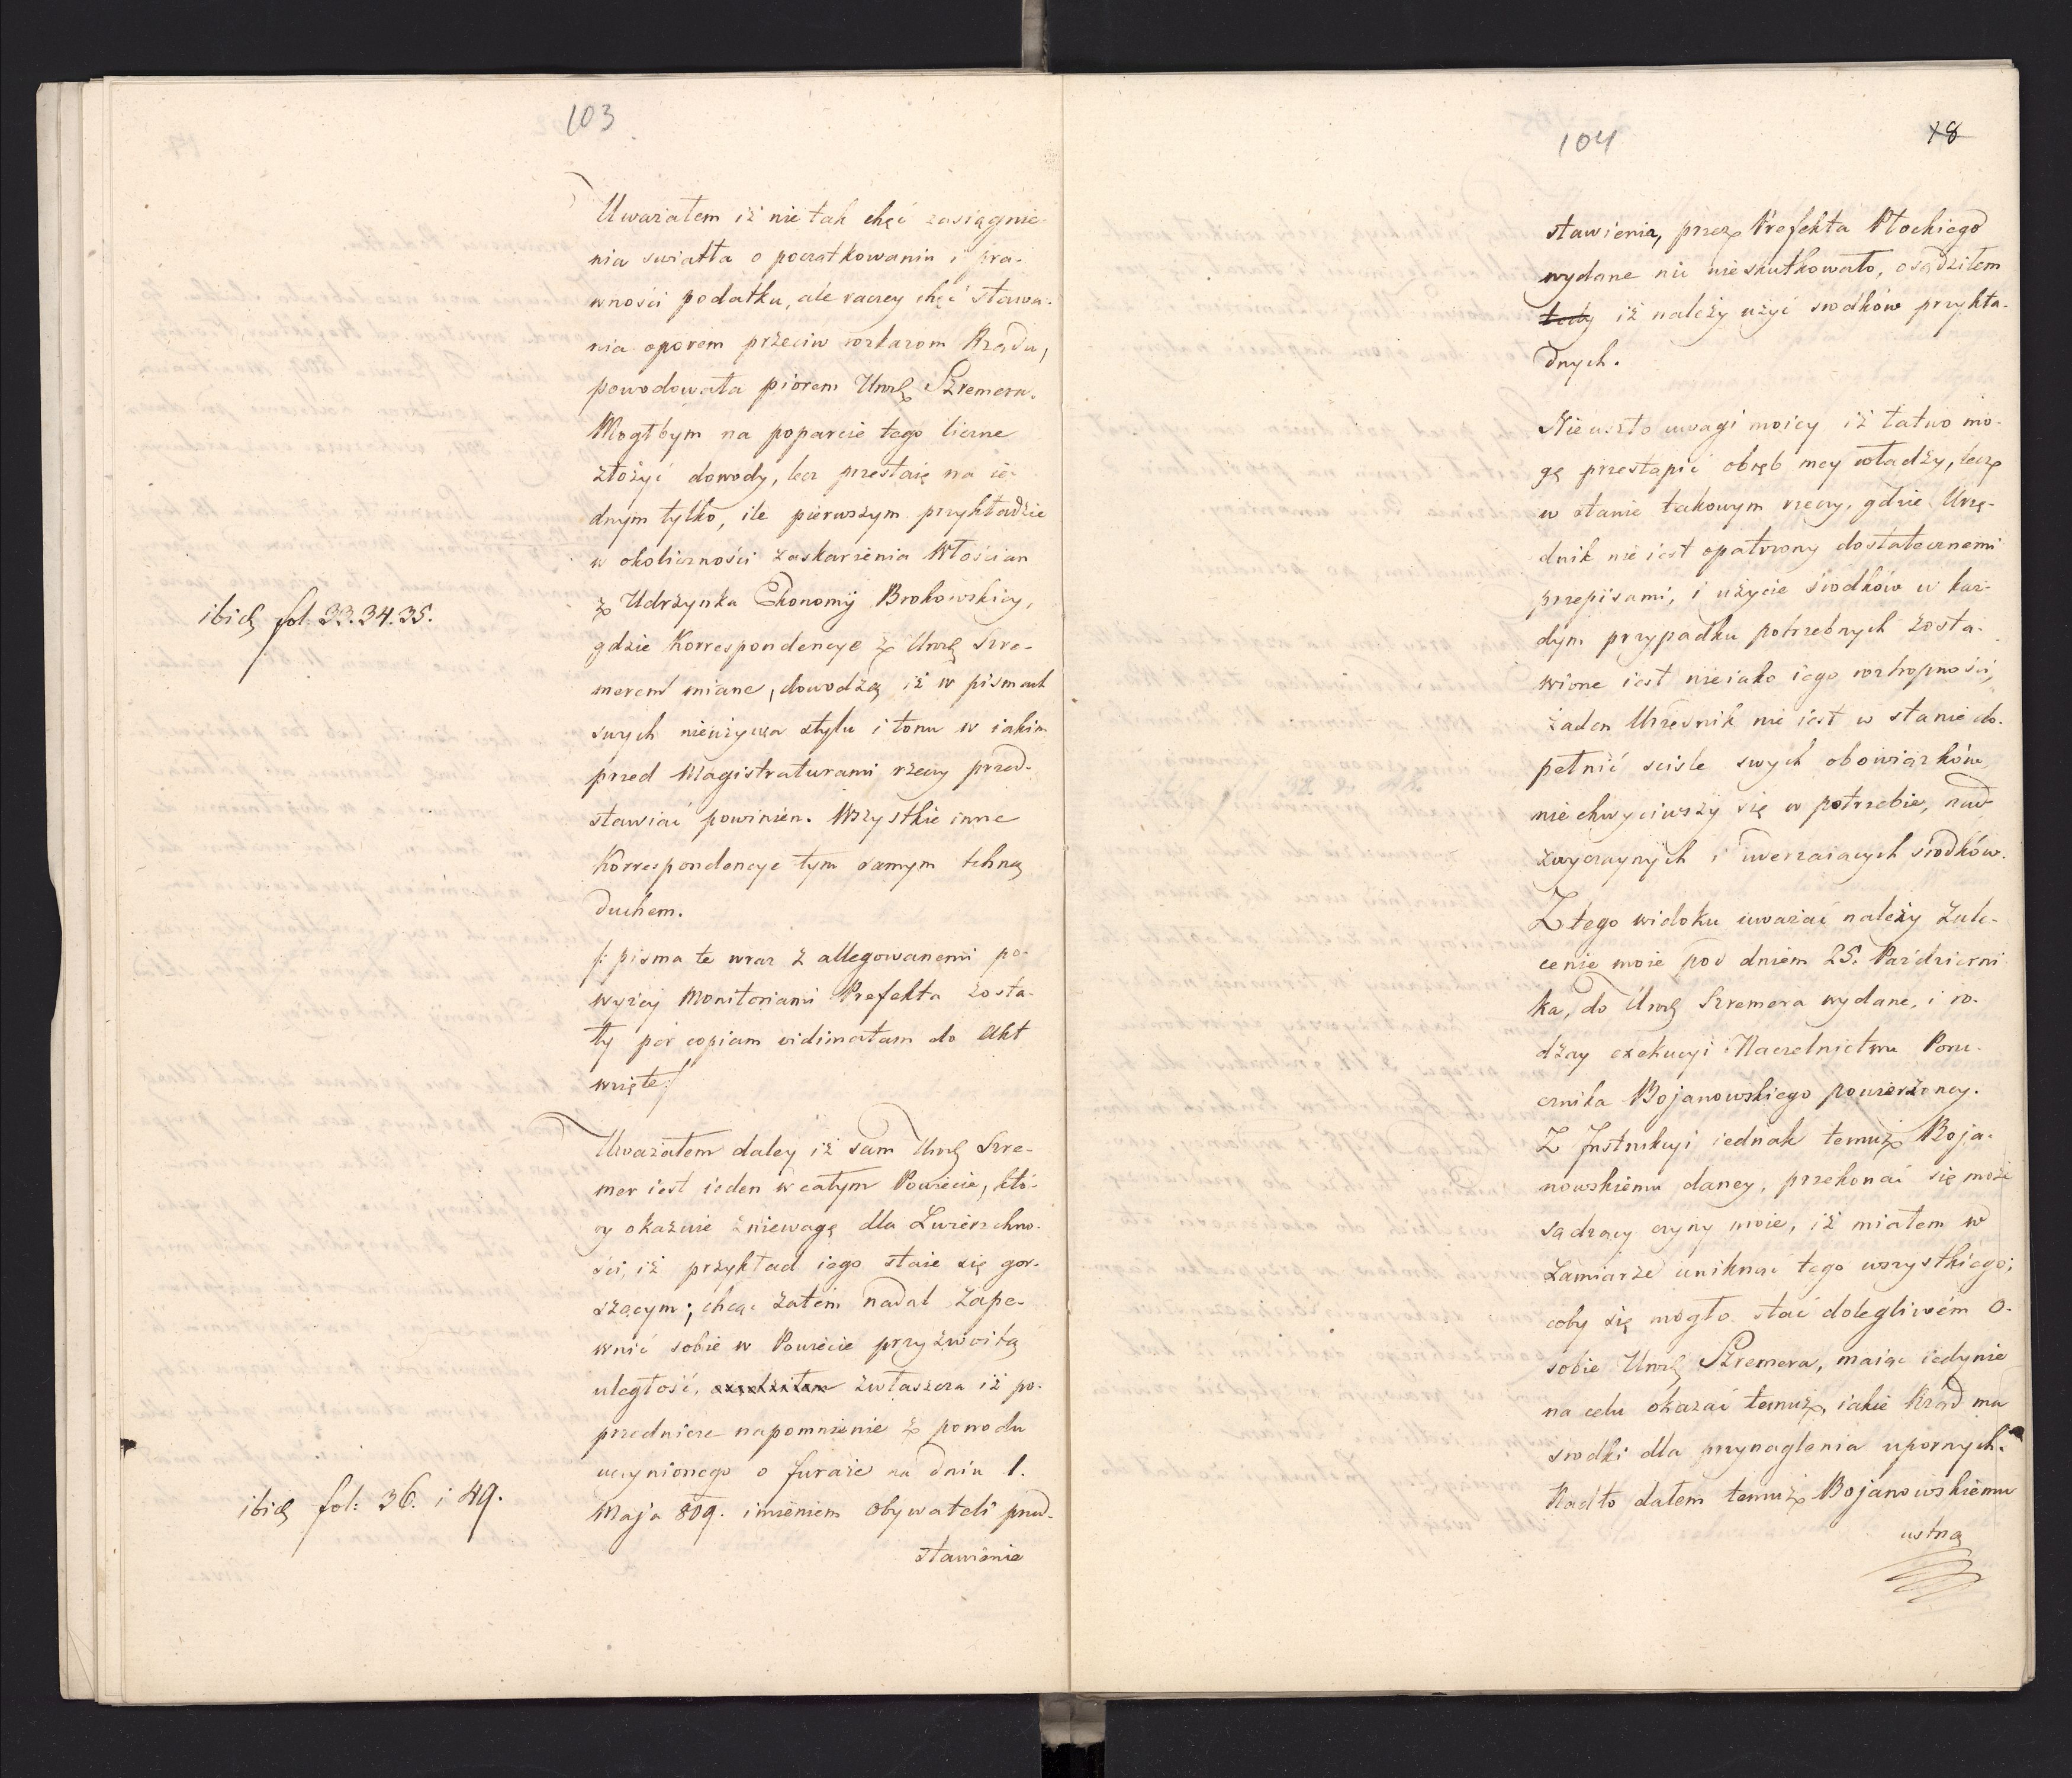 103
Uważałem iż nie tak chęć zasiągnie-
nia swiatła o początkowaniu i pra-
wności podatku, ale raczey chęć stawa-
nia oporem przeciw rozkazom Rządu,
powodowała piorem Urod Szremera.
Mogłbym na poparcie tego liczne
złożyć dowody, lecz przestaię na ie-
dnym tylko, ile pierwszym przykładzie
w okoliczności zaskarżenia Włościan
z Udrzynka Ekonomij Brokowskiey,
ibid fol. 33. 34. 35.
gdzie Korrespondencye z Urod Szre-
merem miane, dowodzą iż w pismach
swych nieużywa stylu i tonu w iakim
przed Magistraturami rzeczy przed-
stawiać powinien. Wszystkie inne
Korrespondencye tym samym tchną
duchem.
/: pisma te wraz z allegowanemi po-
wyżey Monitoriami Prefekta zosta-
ły per copiam vidimatam do Akt
wzięte :/
Uważałem daley iż sam Urod Szre-
mer iest ieden w całym Powiecie, któ-
ry okazuie zniewagę dla Zwierzchno-
ści, iż przykład iego staie się gor-
szącym; chcąc zatem nadal zape-
wnić sobie w Powiecie przyzwoitą
uległość, osądziłem zwłaszcza iż po-
przednicze napomnienie z powodu
uczynionego o furaże na dniu 1.
ibid fol: 36. i 49.
Maja 809. imieniem Obywateli przed-
stawienie
104
18
stawienia, przez Prefekta Płockiego
wydane nic nie skutkowało, osądziłem
tedy iż należy użyć srodków przykła-
dnych.
Nie uszło uwagi moiey iż łatwo mo-
gę przestąpić obręb mey władzy, lecz
w stanie takowym rzeczy, gdzie Urzę-
dnik nie iest opatrzony dostatecznemi
przepisami, i użycie srodków w każ-
dym przypadku potrzebnych zosta-
wione iest nieiako iego roztropności,
żaden Urzędnik nie iest w stanie do-
pełnić scisle swych obowiązków,
nie chwyciwszy się w potrzebie, nad-
zwyczaynych i uderzaiących srodków.
Z tego widoku uważać należy zale-
cenie moie pod dniem 25. Pazdzierni-
ka, do Urod Szremera wydane, i ro-
dzay exekucyi Naczelnictwu Poru-
cznika Bojanowskiego powierzoney.
Z Jnstrukcyi iednak temuż Boja-
nowskiemu daney, przekonać się może
sądzący czyny moie, iż miałem w
zamiarze uniknąć tego wszystkiego,
coby się mogło stać dolegliwém O-
sobie Urod Szremera, maiąc iedynie
na celu okazać temuż, iakie Rząd ma
srodki dla przynaglenia upornych.
Nadto dałem temuż Bojanowskiemu
ustną